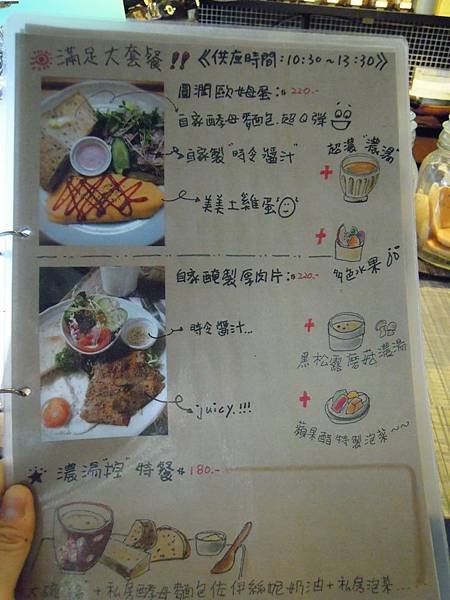 滿足大套餐!!《供應時間:10:30~13:30》
圓潤歐姆蛋:$220.-
自家酵母麵包.超Q彈
自家製"時令醬汁"
美美土雞蛋
超濃"濃湯"
+
+
多色水果
自家醃製厚肉片:$220.-
時令醬汁...
juicy.!!!
+
黑松露蘑菇濃湯
+
蘋果醋特製泡菜~~
★濃湯"控"特餐$180.-
+私房酵母麵包佐伊絲妮奶油+私房泡菜...